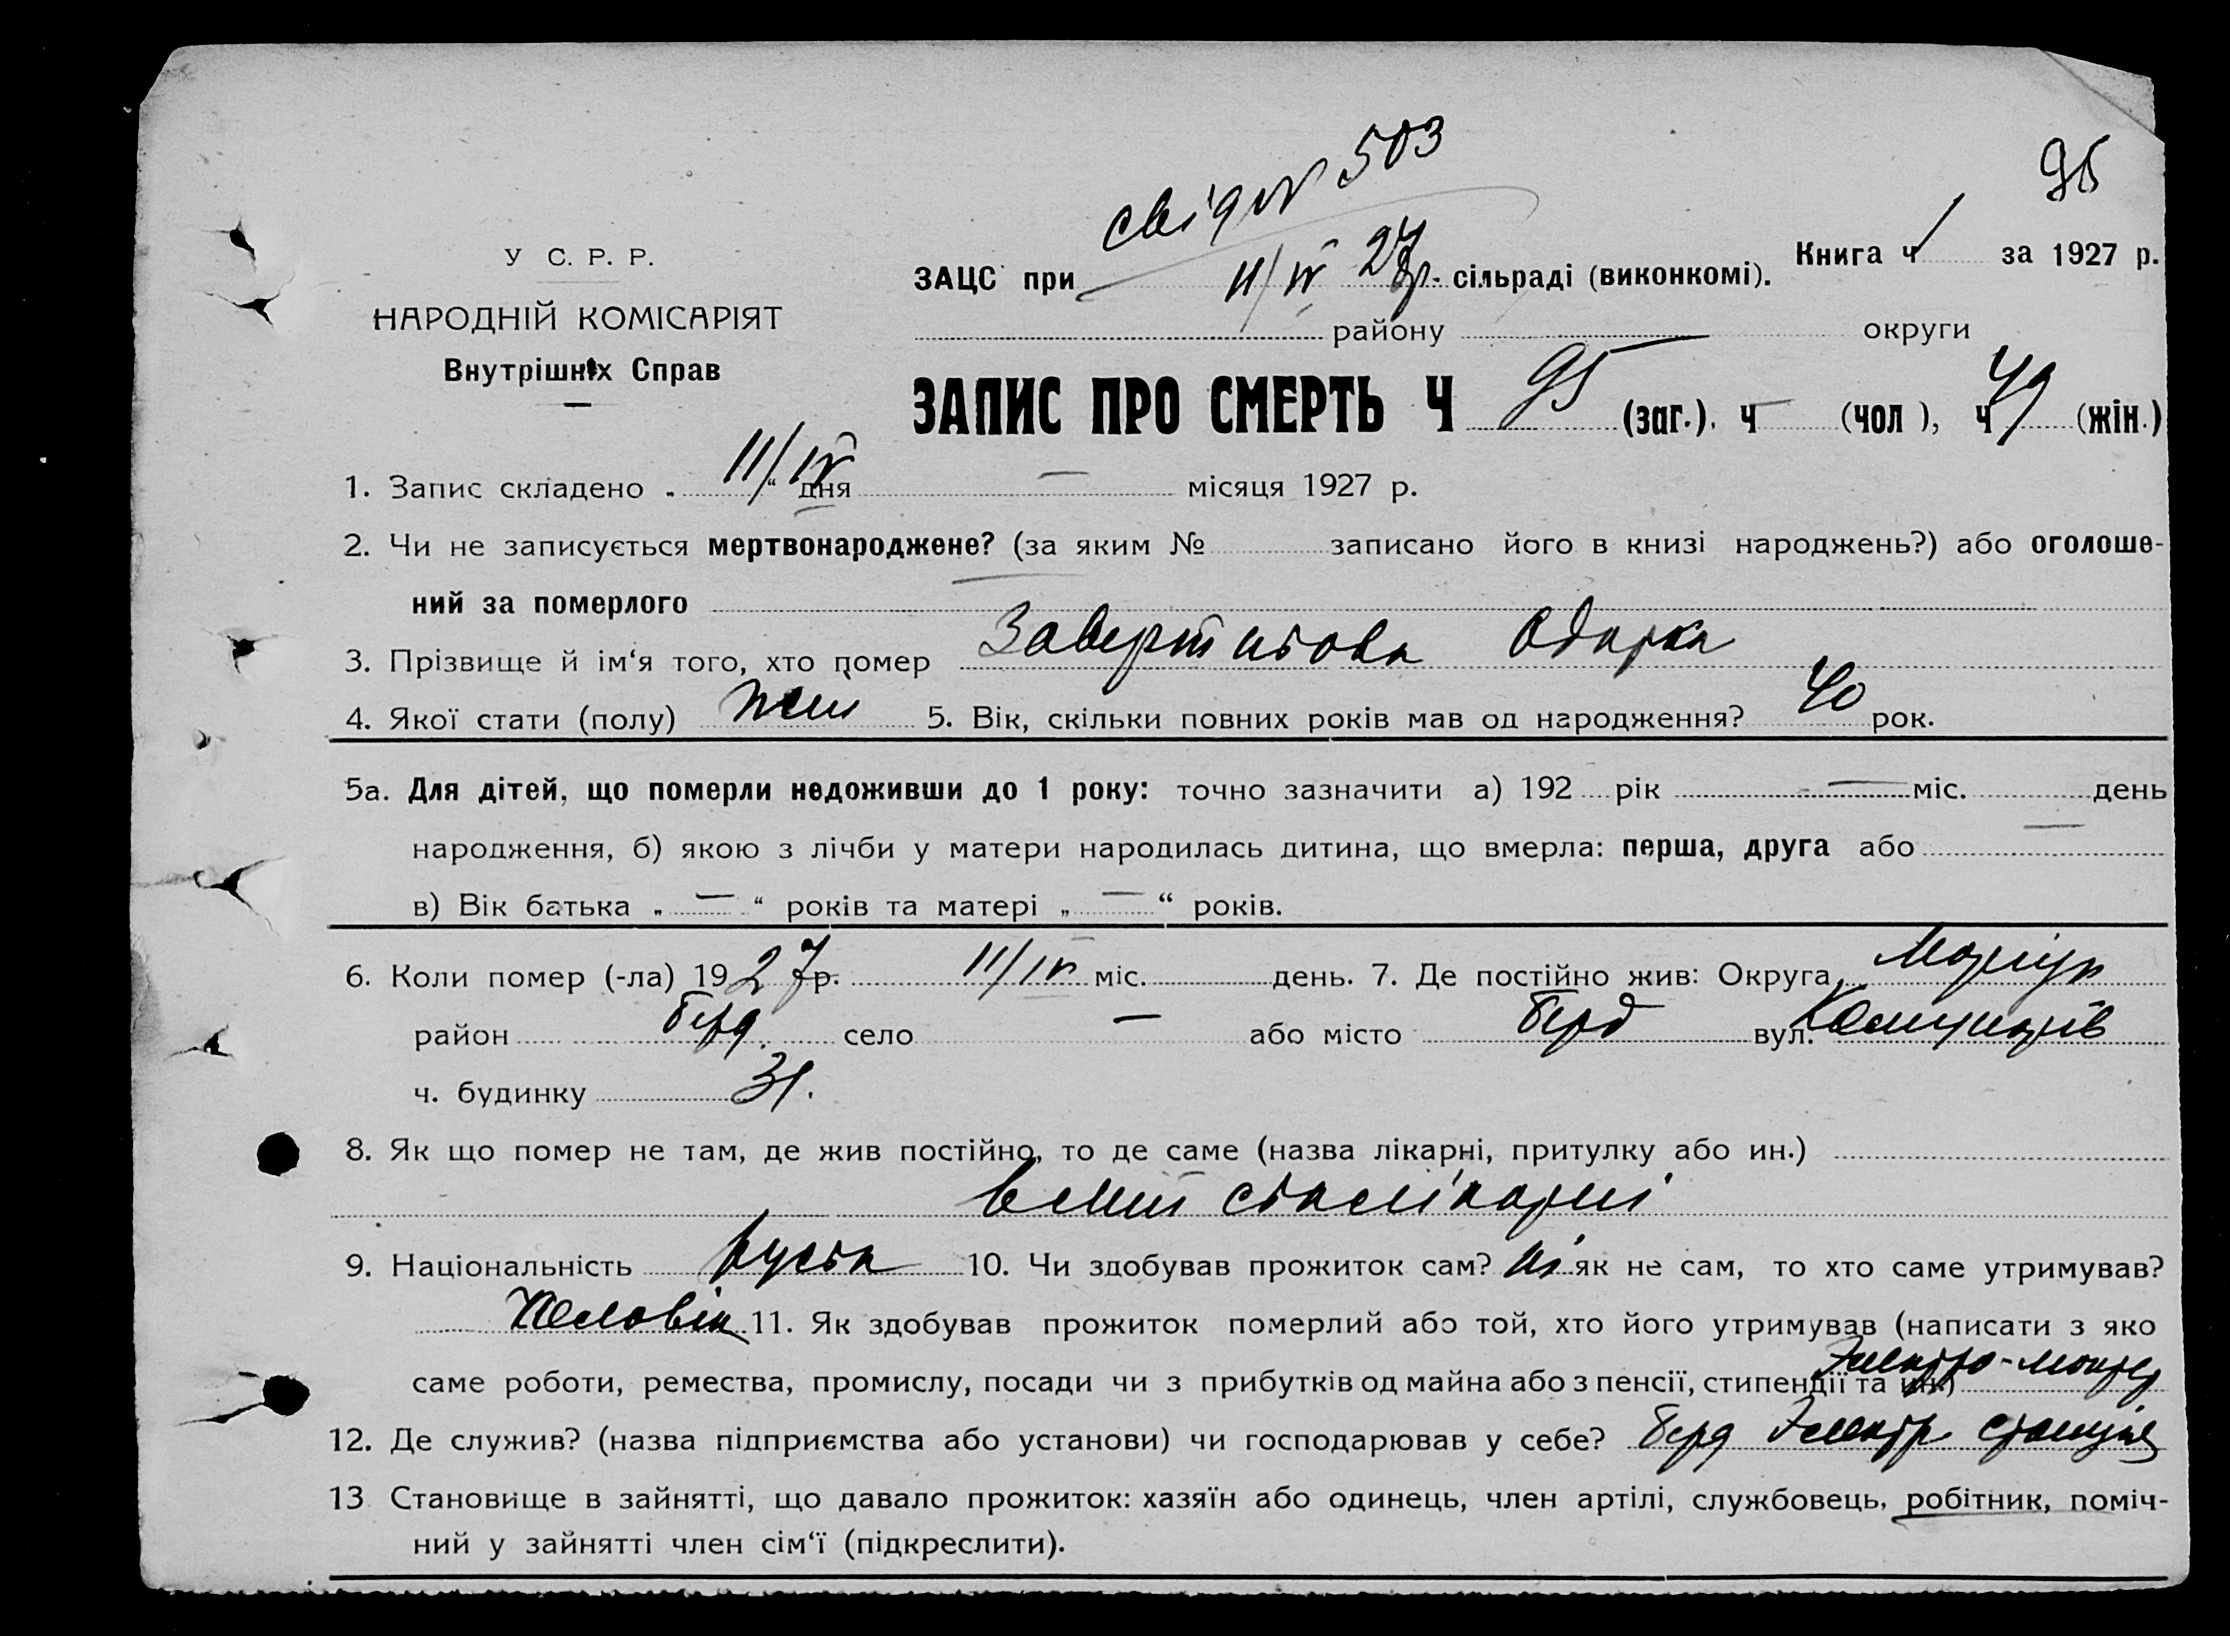 95
свід № 503
У С. Р. Р.
НАРОДНІЙ КОМІСАРІЯТ
Внутрішніх Справ
Книга ч 1 за 1927 р.
ЗАЦС при 11/IV 27 р. сільраді (виконкомі).
району округи
ЗАПИС ПРО СМЕРТЬ Ч 95 (заг.). ч — (чол), ч 49 (жін.)
1. Запис складено „ 11/IV “ дня — місяця 1927 р.
2. Чи не записується мертвонароджене? (за яким № записано його в книзі народжень?) або оголоше-
ний за померлого —
3. Прізвище й ім‘я того, хто помер Одарка
4. Якої стати (полу) жін 5. Вік, скільки повних років мав од народження? 40 рок.
5а. Для дітей, що померли недоживши до 1 року: точно зазначити а) 192 рік — міс. день
народження, б) якою з лічби у матери народилась дитина, що вмерла: перша, друга або —
в) Вік батька „ — “ років та матері „ — “ років.
6. Коли помер (-ла) 1927 р. 11/IV міс. день. 7. Де постійно жив: Округа Маріуп
район Берд. село — або місто Берд вул. Комунарів
ч. будинку 31.
8. Як що помер не там, де жив постійно, то де саме (назва лікарні, притулку або ин.)
в лікарні
9. Національність руська 10. Чи здобував прожиток сам? ні як не сам, то хто саме утримував?
Чоловік 11. Як здобував прожиток померлий або той, хто його утримував (написати з яко
саме роботи, ремества, промислу, посади чи з прибутків од майна або з пенсії, стипендії та ин.) Электро-монтер
12. Де служив? (назва підприємства або установи) чи господарював у себе? Берд Электр. станція
13 Становище в зайнятті, що давало прожиток: хазяїн або одинець, член артілі, службовець, робітник, поміч-
ний у зайнятті член сім‘ї (підкреслити).